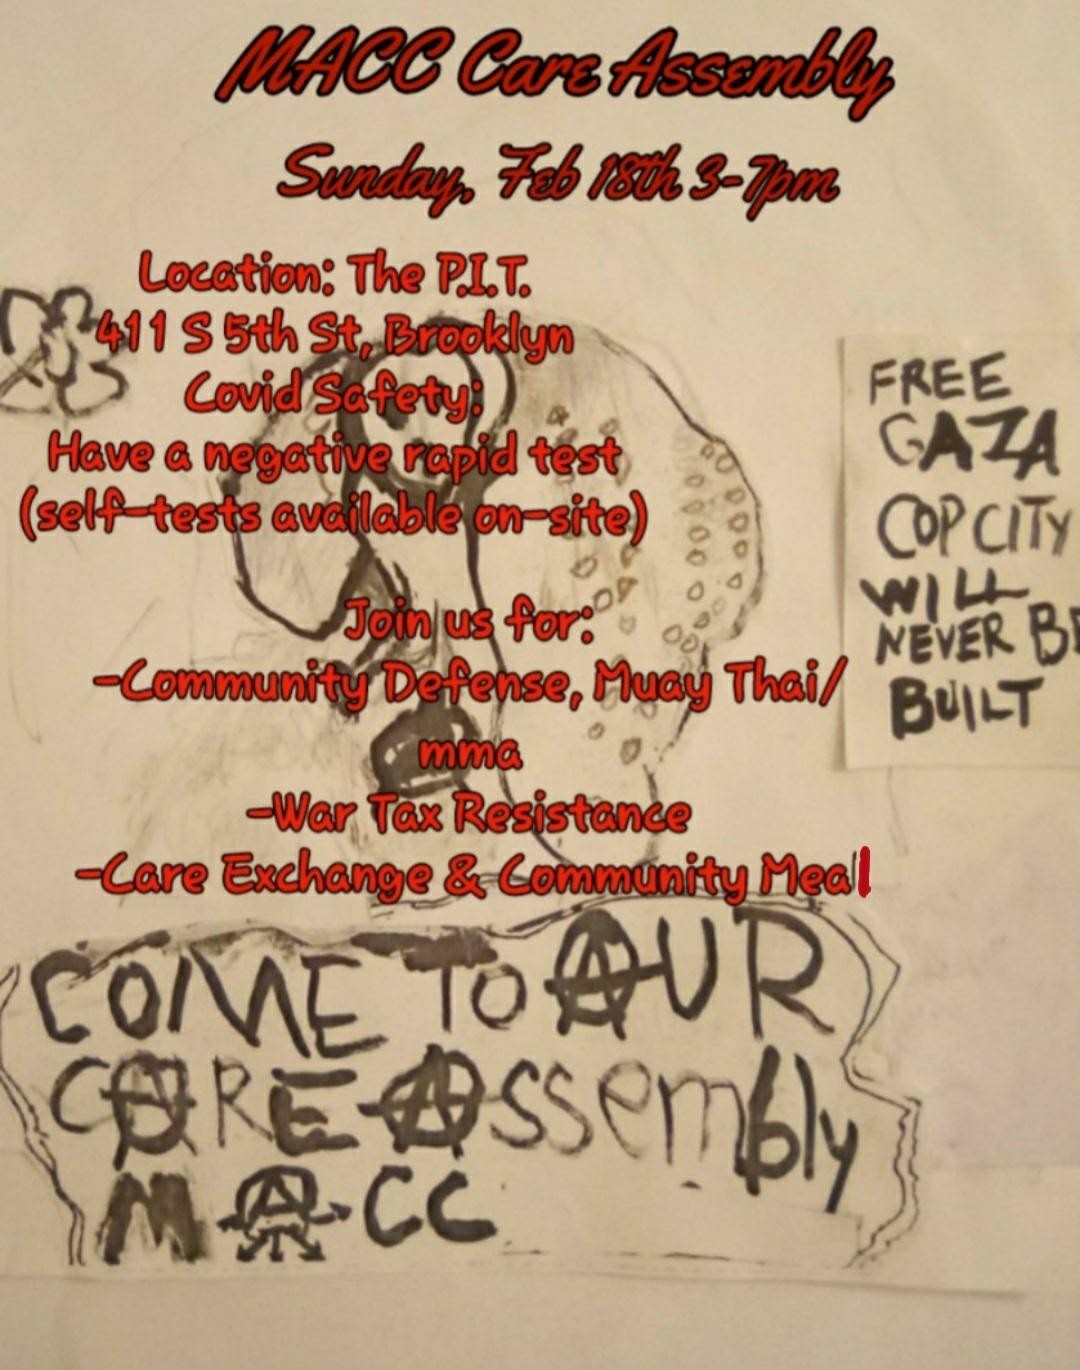 MACC Care Assembly
Sunday, Feb 18th 3-7pm
Location: The P.I.T.
411 S 5th St, Brooklyn
Covid Safety:
Have a negative rapid test
(self-tests available on-site)
Join us for:
-Community Defense, Muay Thai/
mma
-War Tax Resistance
-Care Exchange & Community Meal
FREE
GAZA
COP CITY
WILL
NEVER BE
BUILT
COME TO AUR
CARE Assembly
MACC